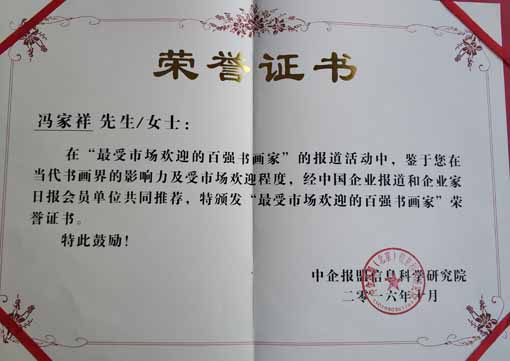 荣誉证书
冯家祥 先生/女士：
在“最受市场欢迎的百强书画家”的报道活动中，鉴于您在
当代书画界的影响力及受市场欢迎程度，经中国企业报道和企业家
日报会员单位共同推荐，特颁发“最受市场欢迎的百强书画家”荣
誉证书。
特此鼓励！
中企报盟信息科学研究院
二零一六年十月